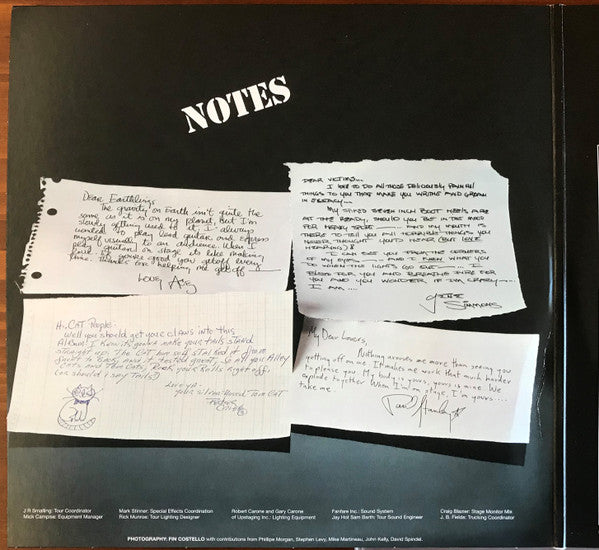 NOTES
Dear Earthlings,
The gravity on Earth isn't quite the
same as it is on my planet, But I'm
slowly getting used to it. I always
wanted to play lead guitar and express
myself visually to an audience. When I
play guitar on stage its like making
love. If you're good you getoff every
time. thanks for helping me getoff
LOVE, Ace
DEAR VICTIMS...
I LOVE TO DO ALL THOSE DELICIOUSLY PAINFUL
THINGS TO YOU THAT MAKE YOU WRITHE AND GROAN
IN ECSTACY...
MY SPIKED SEVEN INCH BOOT HEELS ARE
AT THE READY, SHOULD YOU BE IN THE MOOD
FOR HEAVY SPORT AND MY MOUTH IS
THERE TO TELL YOU ALL TERRIBLE THINGS YOU
NEVER THOUGHT YOU'D NEVER (BUT LOVE
HEARING)
I CAN SEE YOU FROM THE CORNERS
OF MY EYES AND I KNOW WHAT YOU
DO WHEN THE LIGHTS GO OUT I
BLEED FOR YOU AND BREATHE FIRE FOR
YOU AND YOU WONDER IF I'M CRAZY
I AM ....
Gene
Simmons
Hi, CAT People:
well you should get your claws into this
Album! I Know it's gonna make your tails stand
straight up. The CAT has still stalked it from
front to back, and it
Cats and Tom Cats, Rock your Balls right off.
(or should I say Tails?)
Love ya
your Tom CAT
Peter
Criss
My Dear Lovers,
Nothing arouses me more than seeing you
getting off on me. It makes me work that much harder
to please you. My body is yours, yours is mine. We
explode together. When I'm on stage, I'm yours ....
take me..
Paul Stanley
J R Smalling: Tour Coordinator
Mick Campise: Equipment Manager
Mark Stinner: Special Effects Coordination
Rick Munroe: Tour Lighting Designer
Robert Carone and Gary Carone
of Upstaging Inc.: Lighting Equipment
Fanfare Inc.: Sound System
Jay Hot Sam Barth: Tour Sound Engineer
Craig Blazier: Stage Monitor Mix
J. B. Fields: Trucking Coordinator
PHOTOGRAPHY: FIN COSTELLO with contributions from Phillipe Morgan, Stephen Levy, Mike Martineau, John Kelly, David Spindel.